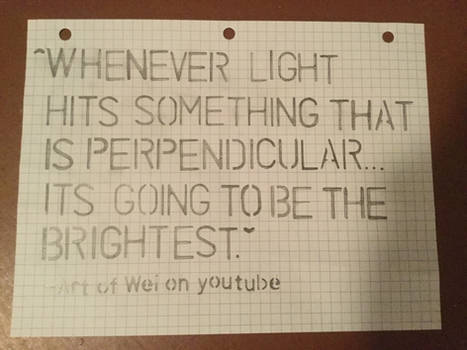 "WHENEVER LIGHT
HITS SOMETHING THAT
IS PERPENDICULAR...
ITS GOING TO BE THE
BRIGHTEST."
-Art of Wei on youtube